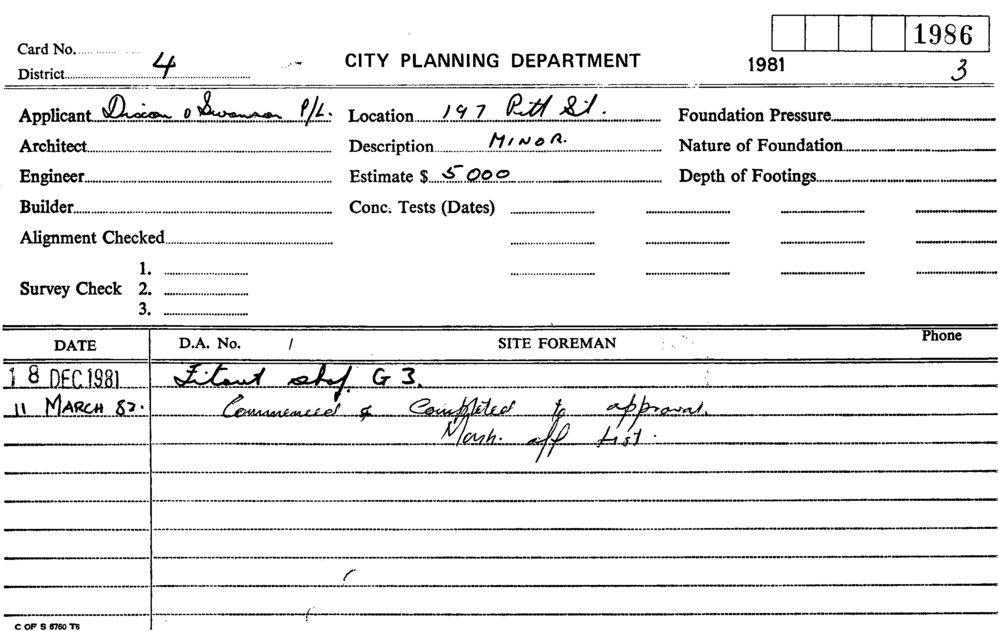 1986
Card No.
CITY PLANNING DEPARTMENT 1981 3
District 4
Applicant Dixon & Swanson P/L. Location 197 Pitt St. Foundation Pressure
Architect Description MINOR. Nature of Foundation
Engineer Estimate $ 5000 Depth of Footings
Builder Conc. Tests (Dates)
Alignment Checked
1.
Survey Check 2.
3.
DATE D.A. No. / SITE FOREMAN Phone
18 DEC 1981 Fitout shop G 3.
11 MARCH 82. Commenced & Completed to approval.
Mark off list.
C OF S 6760 T6